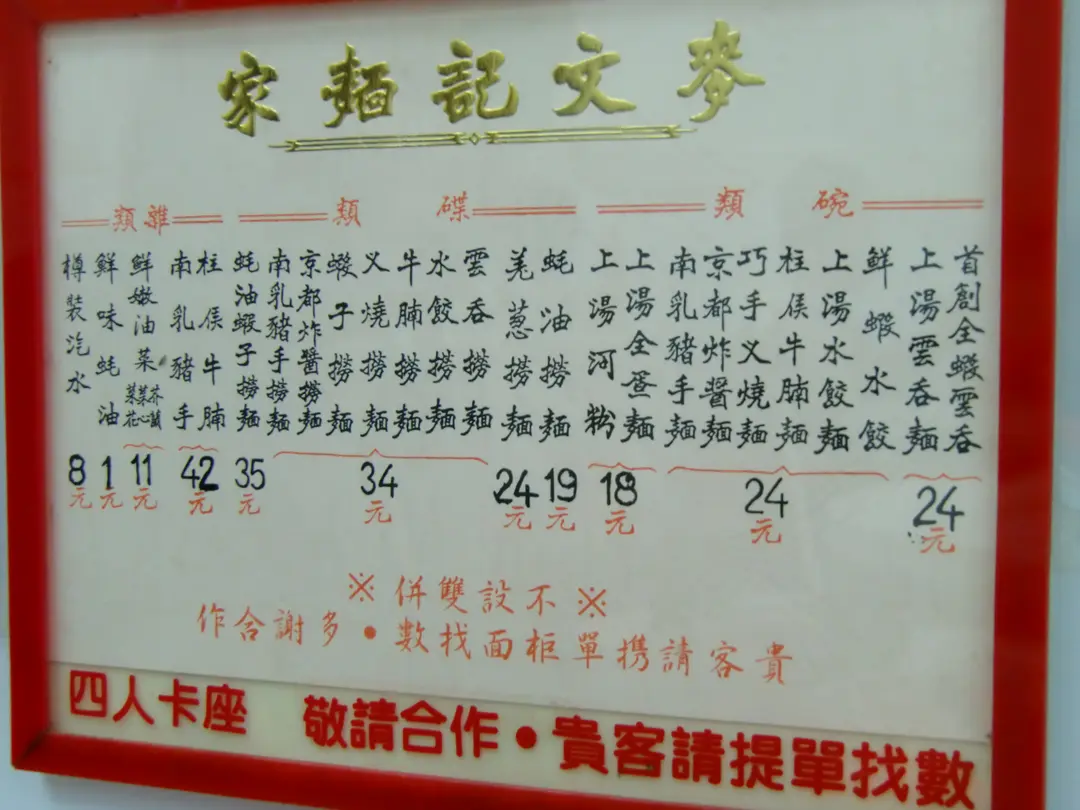 麥文記麵家
碗類
首創全蝦雲吞
上湯雲吞麵
24元
鮮蝦水餃
上湯水餃麵
柱侯牛腩麵
巧手叉燒麵
京都炸醬麵
南乳豬手麵
24元
上湯全蛋麵
上湯河粉
18元
碟類
蚝油撈麵
19元
羌葱撈麵
24元
雲吞撈麵
水餃撈麵
牛腩撈麵
叉燒撈麵
蝦子撈麵
京都炸醬撈麵
南乳豬手撈麵
34元
蚝油蝦子撈麵
35元
雜類
柱侯牛腩
南乳豬手
42元
鮮嫩油菜
芥蘭
菜心
11元
鮮味蚝油
1元
樽裝汽水
8元
※不設雙併※
貴客請携單柜面找數•多謝合作
四人卡座 敬請合作•貴客請提單找數